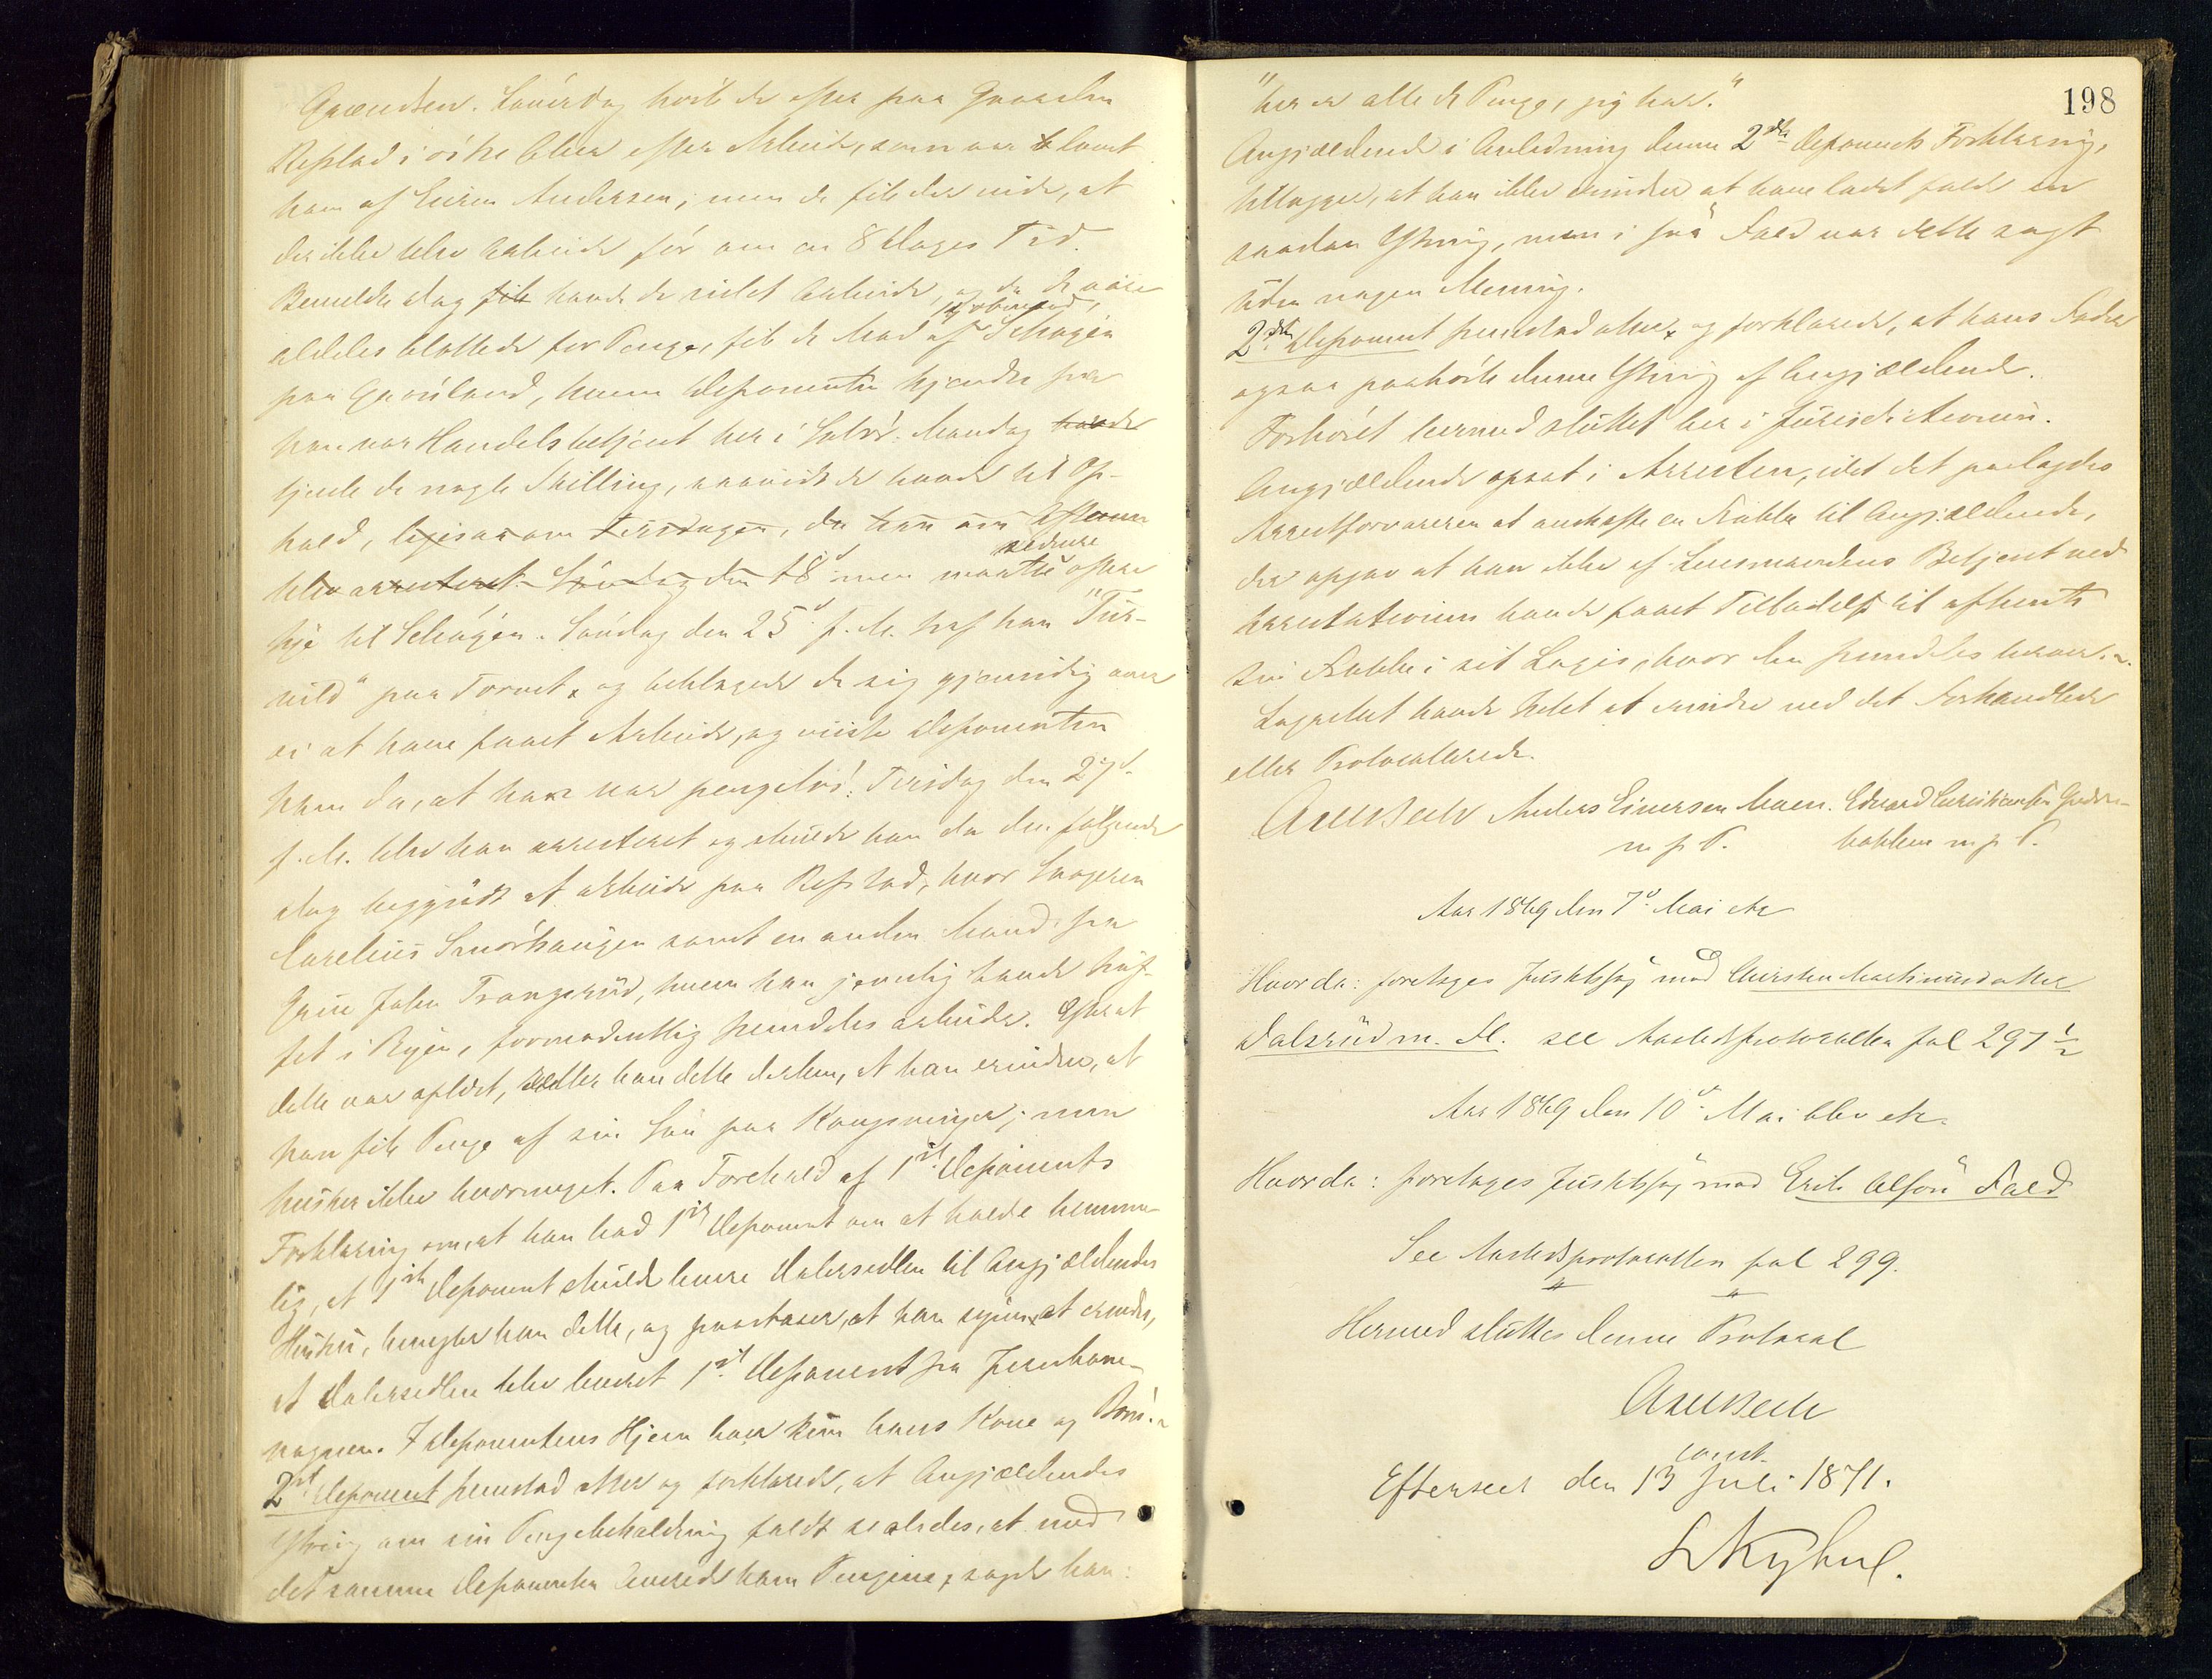 Løverdag de efter paa Gaarden
Refstad i Aker efter Arbeide, som var lovet
ham af Andersen; men de fik der vide, at
der ikke blev Arbeide før om en 8 Dages Tid.
Bemeldte Dag fik havde de intet Arbeide, og da de vare
aldeles blottede for Penge, fik de Mad af Schøyen
paa Grønland, hvem Deponenten kjendte fra
han var Handelsbetjent her i Mandag havde
tjente de nogle Skilling, saavidt de havde til Op-
hold, ligesaa om Tirsdagen, da han om Aftenen
blev arresteret. Søndag den 18de men maatte atter
senere
tye til Schøyen. Søndag den 25de f. M. traf han "Tur-
" paa Torvet, og beklagede de sig gjensidig over
ei at have faaet Arbeide, og viiste Deponenten
ham da, at han var pengeløs. Tirsdag den 27de
f. M. blev han arresteret og skulde han da den følgende
Dag begyndt at arbeide paa Refstad, hvor
Carelius Smørhaugen samt en anden Mand fra
Grue John Trangerud, hvem han jevnlig havde truf-
fet i Byen, formodentlig fremdeles arbeide. Efterat
dette var oplæst, retter han dette derhen, at han erindrer, at
han fik Penge af sin Søn paa Kongsvinger; men
husker ikke hvormeget. Paa Forehold af 1ste Deponents
Forklaring om, at han bad 1ste Deponent om at holde hemme-
lig, at 1ste Deponent skulde levere Dalersedlen til Angjældendes
Hustru, benegter han dette, og paastaaer, at han synes at erindre,
at Dalersedlen blev leveret 1ste Deponent fra Jernbane-
vognen. I Deponentens Hjem var kun hans Kone og Børn.
2det Deponent fremstod atter og forklarede, at Angjældendes
Ytring om sin Pengebeholdning faldt saaledes, at med
det samme Deponenten leverede ham Pengene, sagde han:
198
"her er alle de Penge, jeg har."
Angjældende i Anledning denne 2det Deponents Forklaring,
tillægger, at han ikke erindrer at have ladet falde en
saadan Ytring, men i saa Fald var dette sagt
uden nogen Mening.
2det Deponent fremstod atter, og forklarede, at hans Fader
ogsaa paahørte denne Ytring af Angjældende.
Forhøret hermed sluttet her i Jurisdictionen.
Angjældende opsat i Arresten, idet det paalagdes
Arrestforvareren at anskaffe en Frakke til Angjældende,
der opgav at han ikke af Lensmandens Betjent ved
Arrestationen havde faaet Tilladelse til afhente
sin Frakke i sit Logis, hvor den fremdeles beror.
Lagrettet havde Intet at erindre ved det Forhandlede
eller Protocollerede.
Axel Bech Anders Einersen Moen. Edvard Christiansen
m. p. P. m. p. P.
Aar 1869 den 7de Mai etc
Hvorda: foretages Justitssag mod Kirsten Martinusdatter
Dalsrud m. Fl. see Aastedsprotocollen fol 297 1/2
Aar 1869 den 10de Mai blev etc.
Hvorda: foretages Justitssag mod Erik Olsøn Fald
See Aastedsprotocollen fol 299.
Hermed sluttes denne Protocol
Axel Bech
const.
Efterseet den 13 Juli 1871.